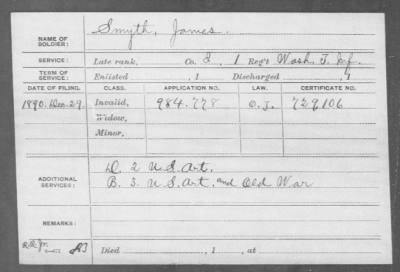 NAME OF SOLDIER: Smyth, James.
SERVICE: Late rank, Co. D, 1 Reg't Wash. T. Inf.
TERM OF SERVICE: Enlisted , 1 Discharged , 1
DATE OF FILING. CLASS. APPLICATION NO. LAW. CERTIFICATE NO.
1890. Dec. 29. Invalid, 984.778 O.J. 729106
Widow,
Minor,
ADDITIONAL SERVICES: D. 2 U.S. Art.
B. 3. U.S. Art. and Old War
REMARKS:
Died , 1 , at